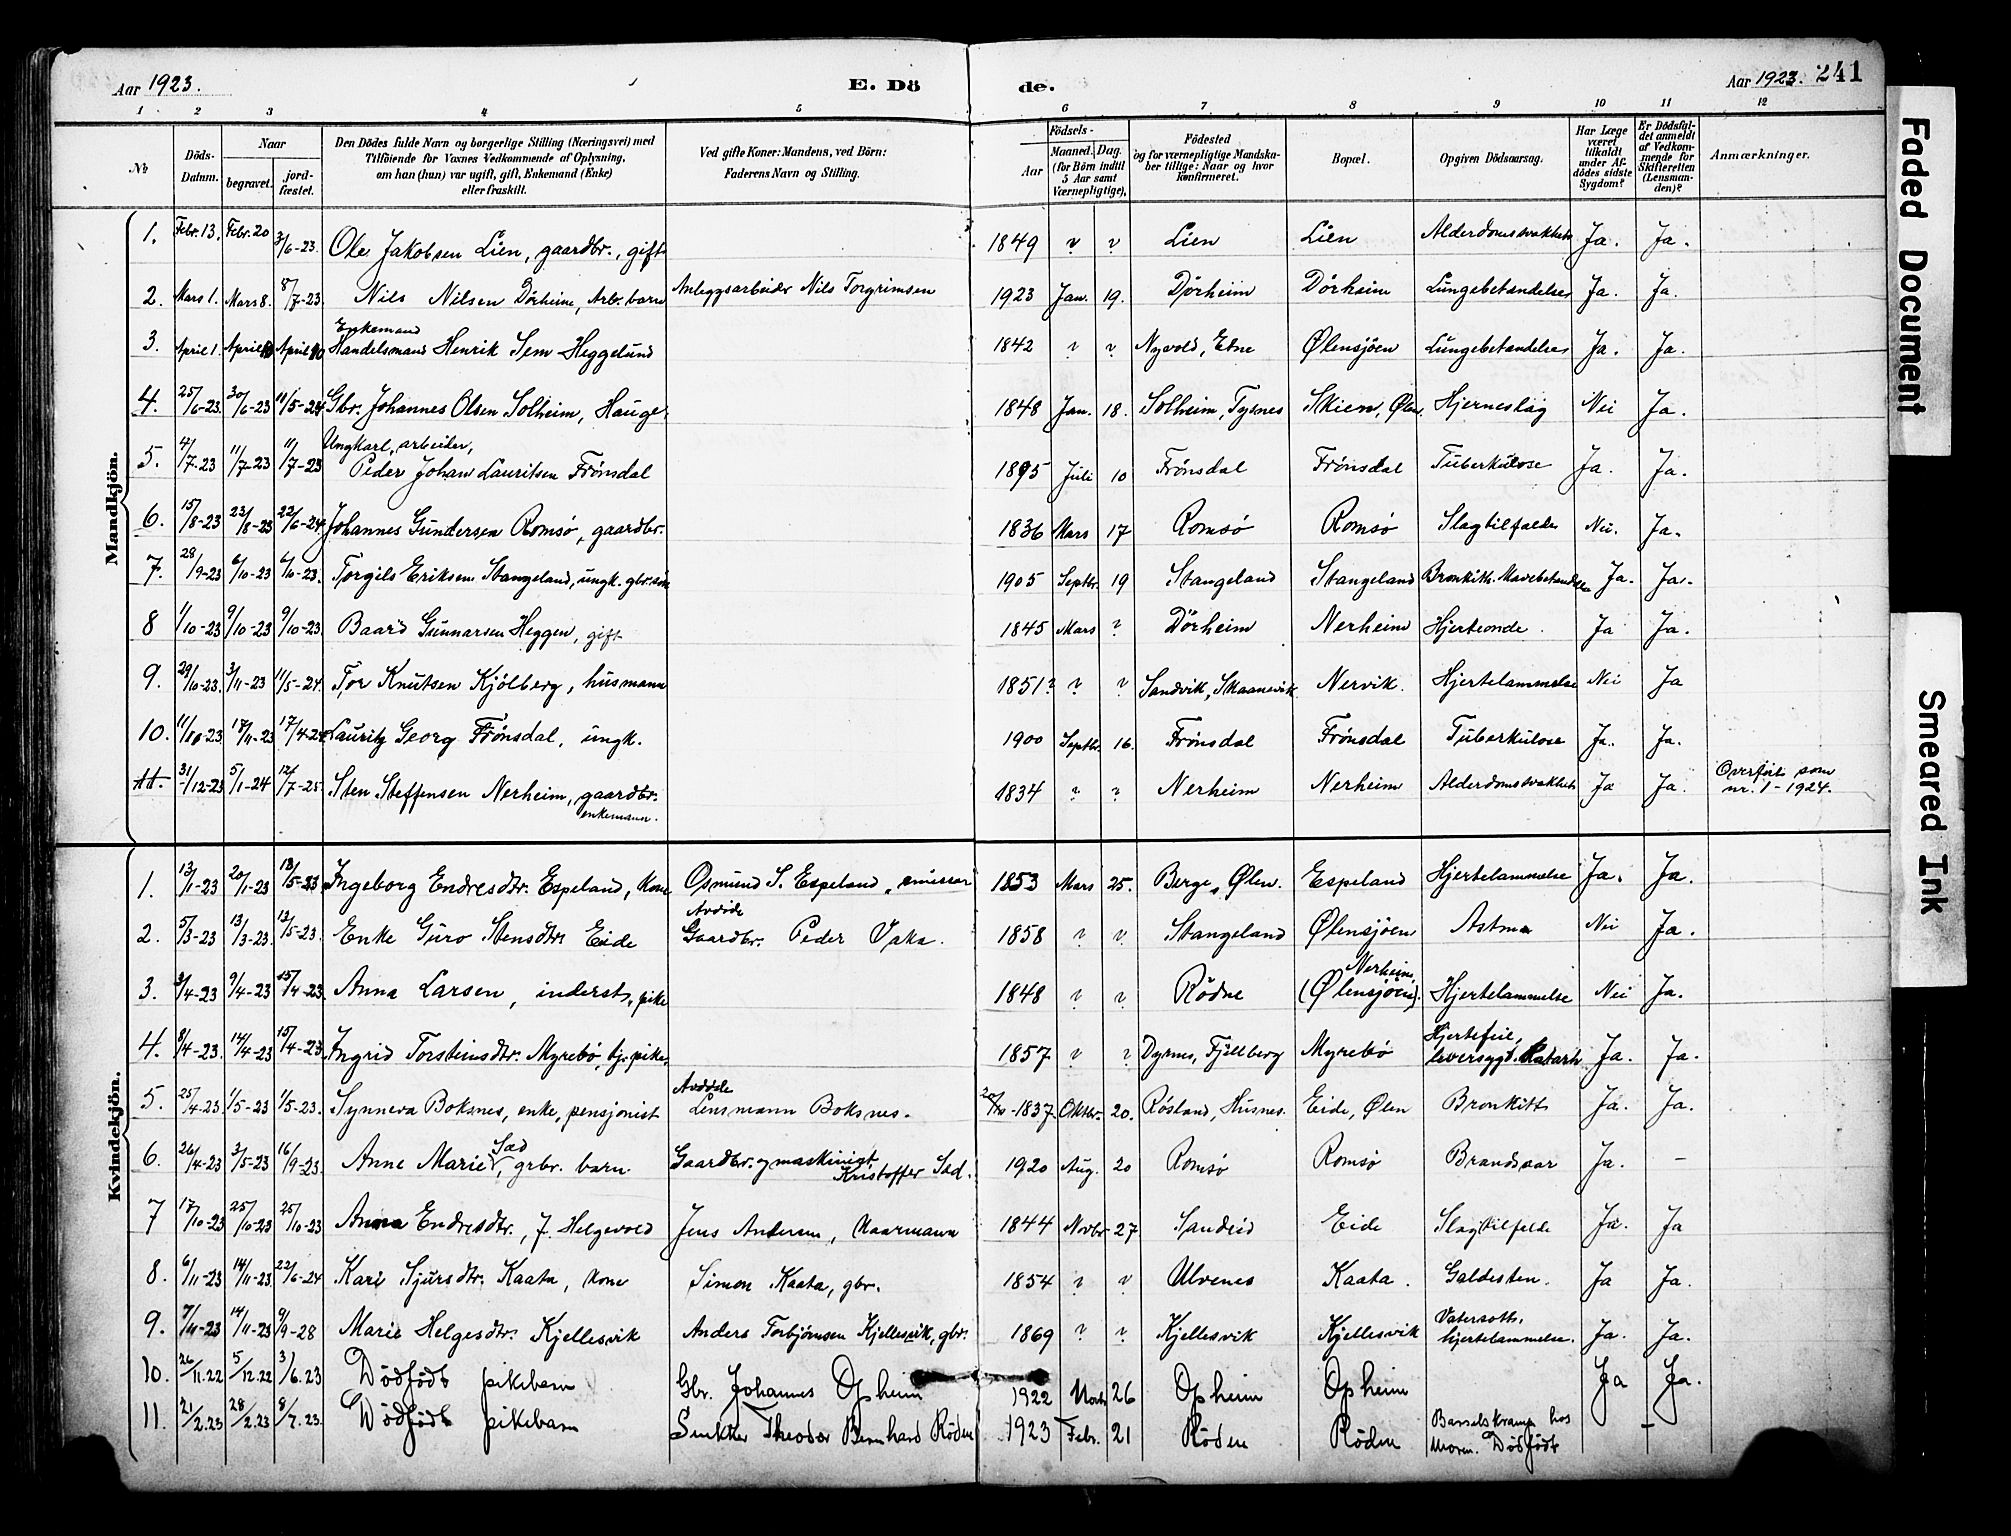 Aar 1923. E. Dö de. Aar 1923. 241
1 2 3 4 5 6 7 8 9 10 11 12
No Döds-Datum. Naar begravet. jord-fæstet. Den Dödes fulde Navn og borgerlige Stilling (Næringsvei) med Tilföiende for Voxnes Vedkommende af Oplysning, om han (hun) var ugift, gift, Enkemand (Enke) eller fraskilt. Ved gifte Koner: Mandens, ved Börn: Faderens Navn og Stilling. Födsels- Aar Maaned. Dag. (for Börn indtil 5 Aar samt Værnepligtige). Födested og for værnepligtige Mandskaber tillige: Naar og hvor konfirmeret. Bopæl. Opgiven Dödsaarsag. Har Læge været tilkaldt under Afdödes sidste Sygdom? Er Dödsfaldet anmeldt af Vedkommende for Skifteretten (Lensmanden)? Anmærkninger.
Mandkjön.
1. Febr. 13. Febr. 20 3/6-23. Ole Jakobsen Lien, gaardbr., gift 1849 ? ? Lien Lien Alderdomssvakhet Ja. Ja.
2. Mars 1. Mars 8. 8/7-23. Nils Nilsen Dörheim, Arb. barn Anleggsarbeider Nils Torgrimsen 1923 Jan. 19. Djörheim Dörheim Lungebetendelse Ja. Ja.
3. April 1. April 10 April 10 Enkemand Handelsmand Henrik Sem Heggelund 1842 ? ? Nyvold, Etne Ølensjöen Lungebetendelse Ja. Ja.
4. 25/6-23. 30/6-23 11/5-24 Gbr. Johannes Olsen Solheim, Hauge 1848 Jan. 18. Solheim, Tysnes Skien, Ølen, Hjerneslag Nei Ja.
5. 4/7-23 11/7-23 11/7-23 Ungkarl, arbeider, Peder Johan Lauritsen Frönsdal 1895 Juli 10 Frönsdal Frönsdal Tuberkulose Ja. Ja.
6. 15/8-23 23/8-23 22/6-24. Johannes Gundersen Romsø, gaardbr. 1836 Mars 17 Romsø Romsø Slagtilfælde Nei. Ja.
7. 28/9-23 6/10-23 6/10-23. Torgils Eriksen Stangeland, ungk. gbr.søn 1905 Septbr. 19 Stangeland Stangeland Bronkitt. Mavebetendelse Ja. Ja.
8 1/10-23 9/10-23 9/10-23 Baard Gunnarsen Heggen, gift 1845 Mars ? Dörheim Nerheim Hjerteonde. Ja Ja.
9. 29/10-23. 3/11-23 11/5-24. Tor Knutsen Kjölberg, husmann 1851? ? ? Sandvik, Skaanevik Nervik. Hjertelammelse Nei Ja
10. 11/10-23 17/11-23 17/4-24 Lauritz Georg Frönsdal, ungk. 1900 Septbr. 16. Frönsdal Frönsdal Tuberkulose Ja. Ja.
11. 31/12-23 5/1-24 12/7-25. Sten Steffensen Nerheim, gaardbr. enkemann. 1834 ? ? Nerheim Nerheim Alderdomssvakhet Ja Ja. Overfört som nr. 1-1924.
Kvindekjön.
1. 13/1-23 20/1-23 18/5-23 Ingeborg Endresdtr. Espeland, kone Osmund S. Espeland, emissær 1853 Mars 25. Berge, Ølen. Espeland Hjertelammelse Ja. Ja.
2. 5/3-23 13/3-23. 13/5-23. Enke Guro Stensdtr. Eide Avdöde Gaardbr. Peder Vaka. 1858 ? ? Stangeland Ølensjöen Astma Nei Ja.
3. 3/4-23 9/4-23 15/4-23. Anna Larsen, inderst, pike 1848 ? ? Rödne Nerheim, (Ølensjöen). Hjertelammelse Nei Ja.
4. 8/4-23. 14/4-23 15/4-23. Ingrid Torsteinsdtr. Myrebö, tj. pike. 1857 ? ? Dyrnes, Fjellberg Myrebö Hjertefeil, leversygd. Katarh Ja. Ja.
5. 25/4-23 1/5-23 1/5-23. Synneva Boksnes, enke, pensjonist Avdöde Lensmann Boksnes. 20/10-1837. Oktbr. 20. Rösland, Husnes. Eide, Ølen Bronkitt Ja. Ja.
6. 26/4-23 3/5-23 16/9-23. Anne Marie Sæd, grbr. barn Gaardbr. og maskinist Kristoffer Sæd. 1920 Aug. 20 Romsø Romsø Brandsaar Ja. -
7 17/10-23 25/10-23 25/10-23 Anna Endresdtr., f. Helgevold Jens Andersen, Haarmann 1844 Novbr 27 Sandeid Eide Slagtilfelde Ja. Ja
8. 6/11-23 14/11-23 22/6-24 Kari Sjursdtr. Kaata, kone Simon Kaata, gbr. 1854 ? ? Ulvenes Kaata. Galdesten. Ja Ja.
9. 7/11-23 14/11-23 9/9-28 Marie Helgesdtr. Kjellesvik Anders Torbjörnsen Kjellesvik, gbr. 1869 ? ? Kjellesvik Kjellesvik Vatersott, hjertelammelse. Ja. Ja.
10. 26/11.22 5/12.22 3/6.23 Dödfödt pikebarn Gbr. Johannes Opheim 1922 Novbr 26 Opheim Opheim Ja Ja.
11. 21/2.23 28/2.23 8/7.23. Dödfödt pikebarn Snekker Theodor Bernhard Röden 1923 Febr. 21 Röden Röden Barselskramp hos moren. Dödfödt -
Faded Document
Smeared Ink